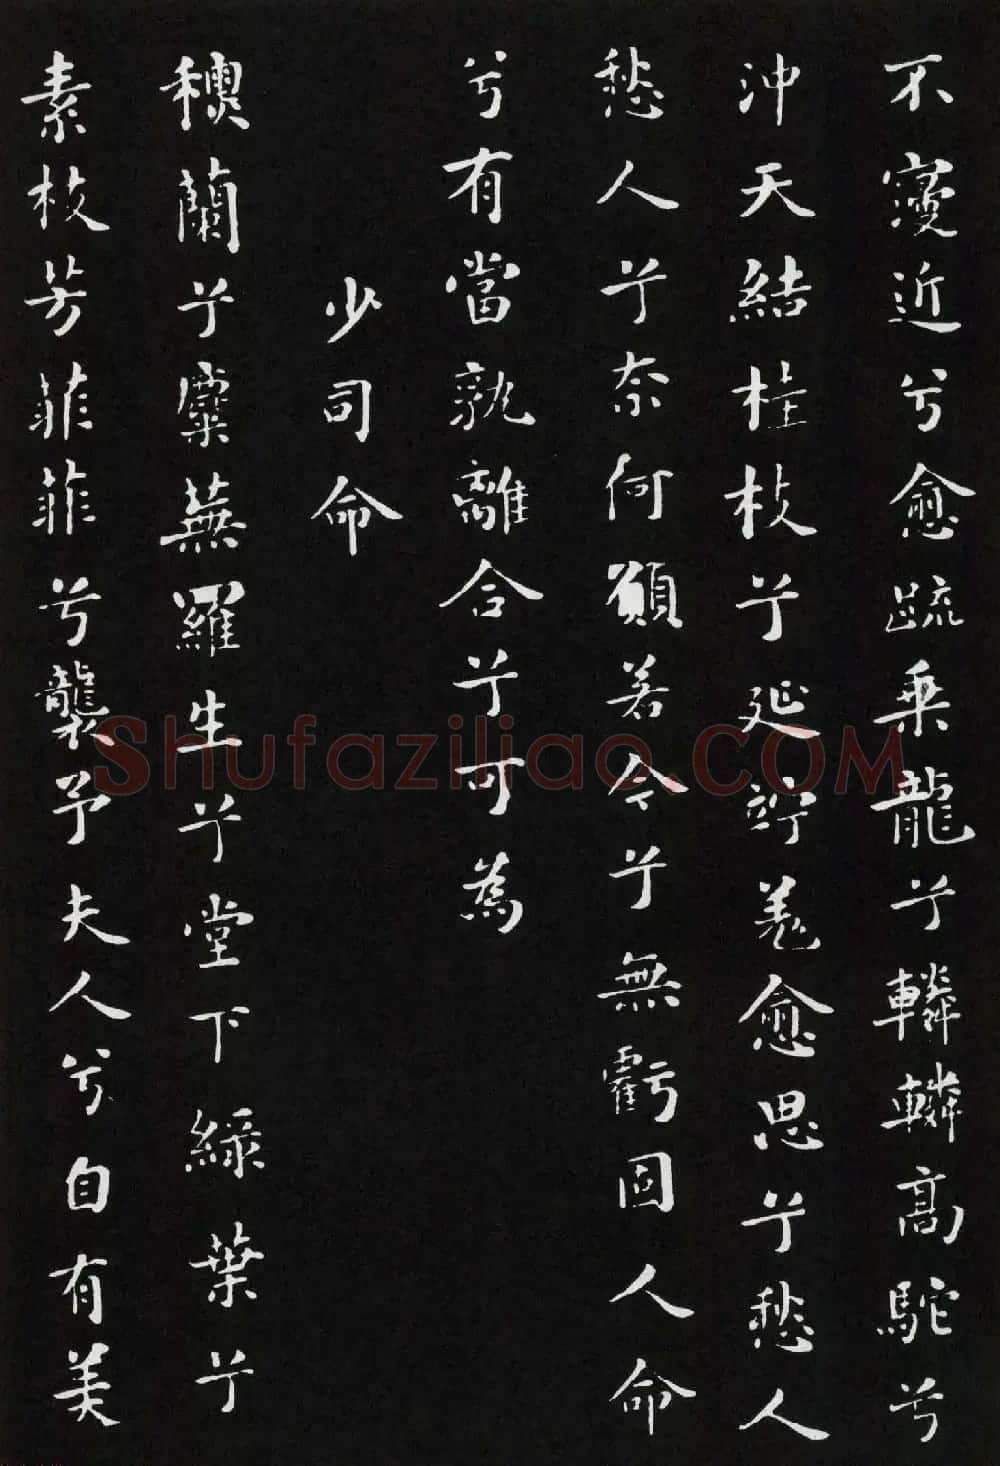 不寖近兮愈疏乘龍兮轔轔高駝兮
沖天結桂枝兮延竚羌愈思兮愁人
愁人兮奈何願若今兮無虧固人命
兮有當孰離合兮可為
少司命
穮蘭兮麋蕪羅生兮堂下綠葉兮
素枝芳菲菲兮襲予夫人兮自有美
Shufaziliao.COM